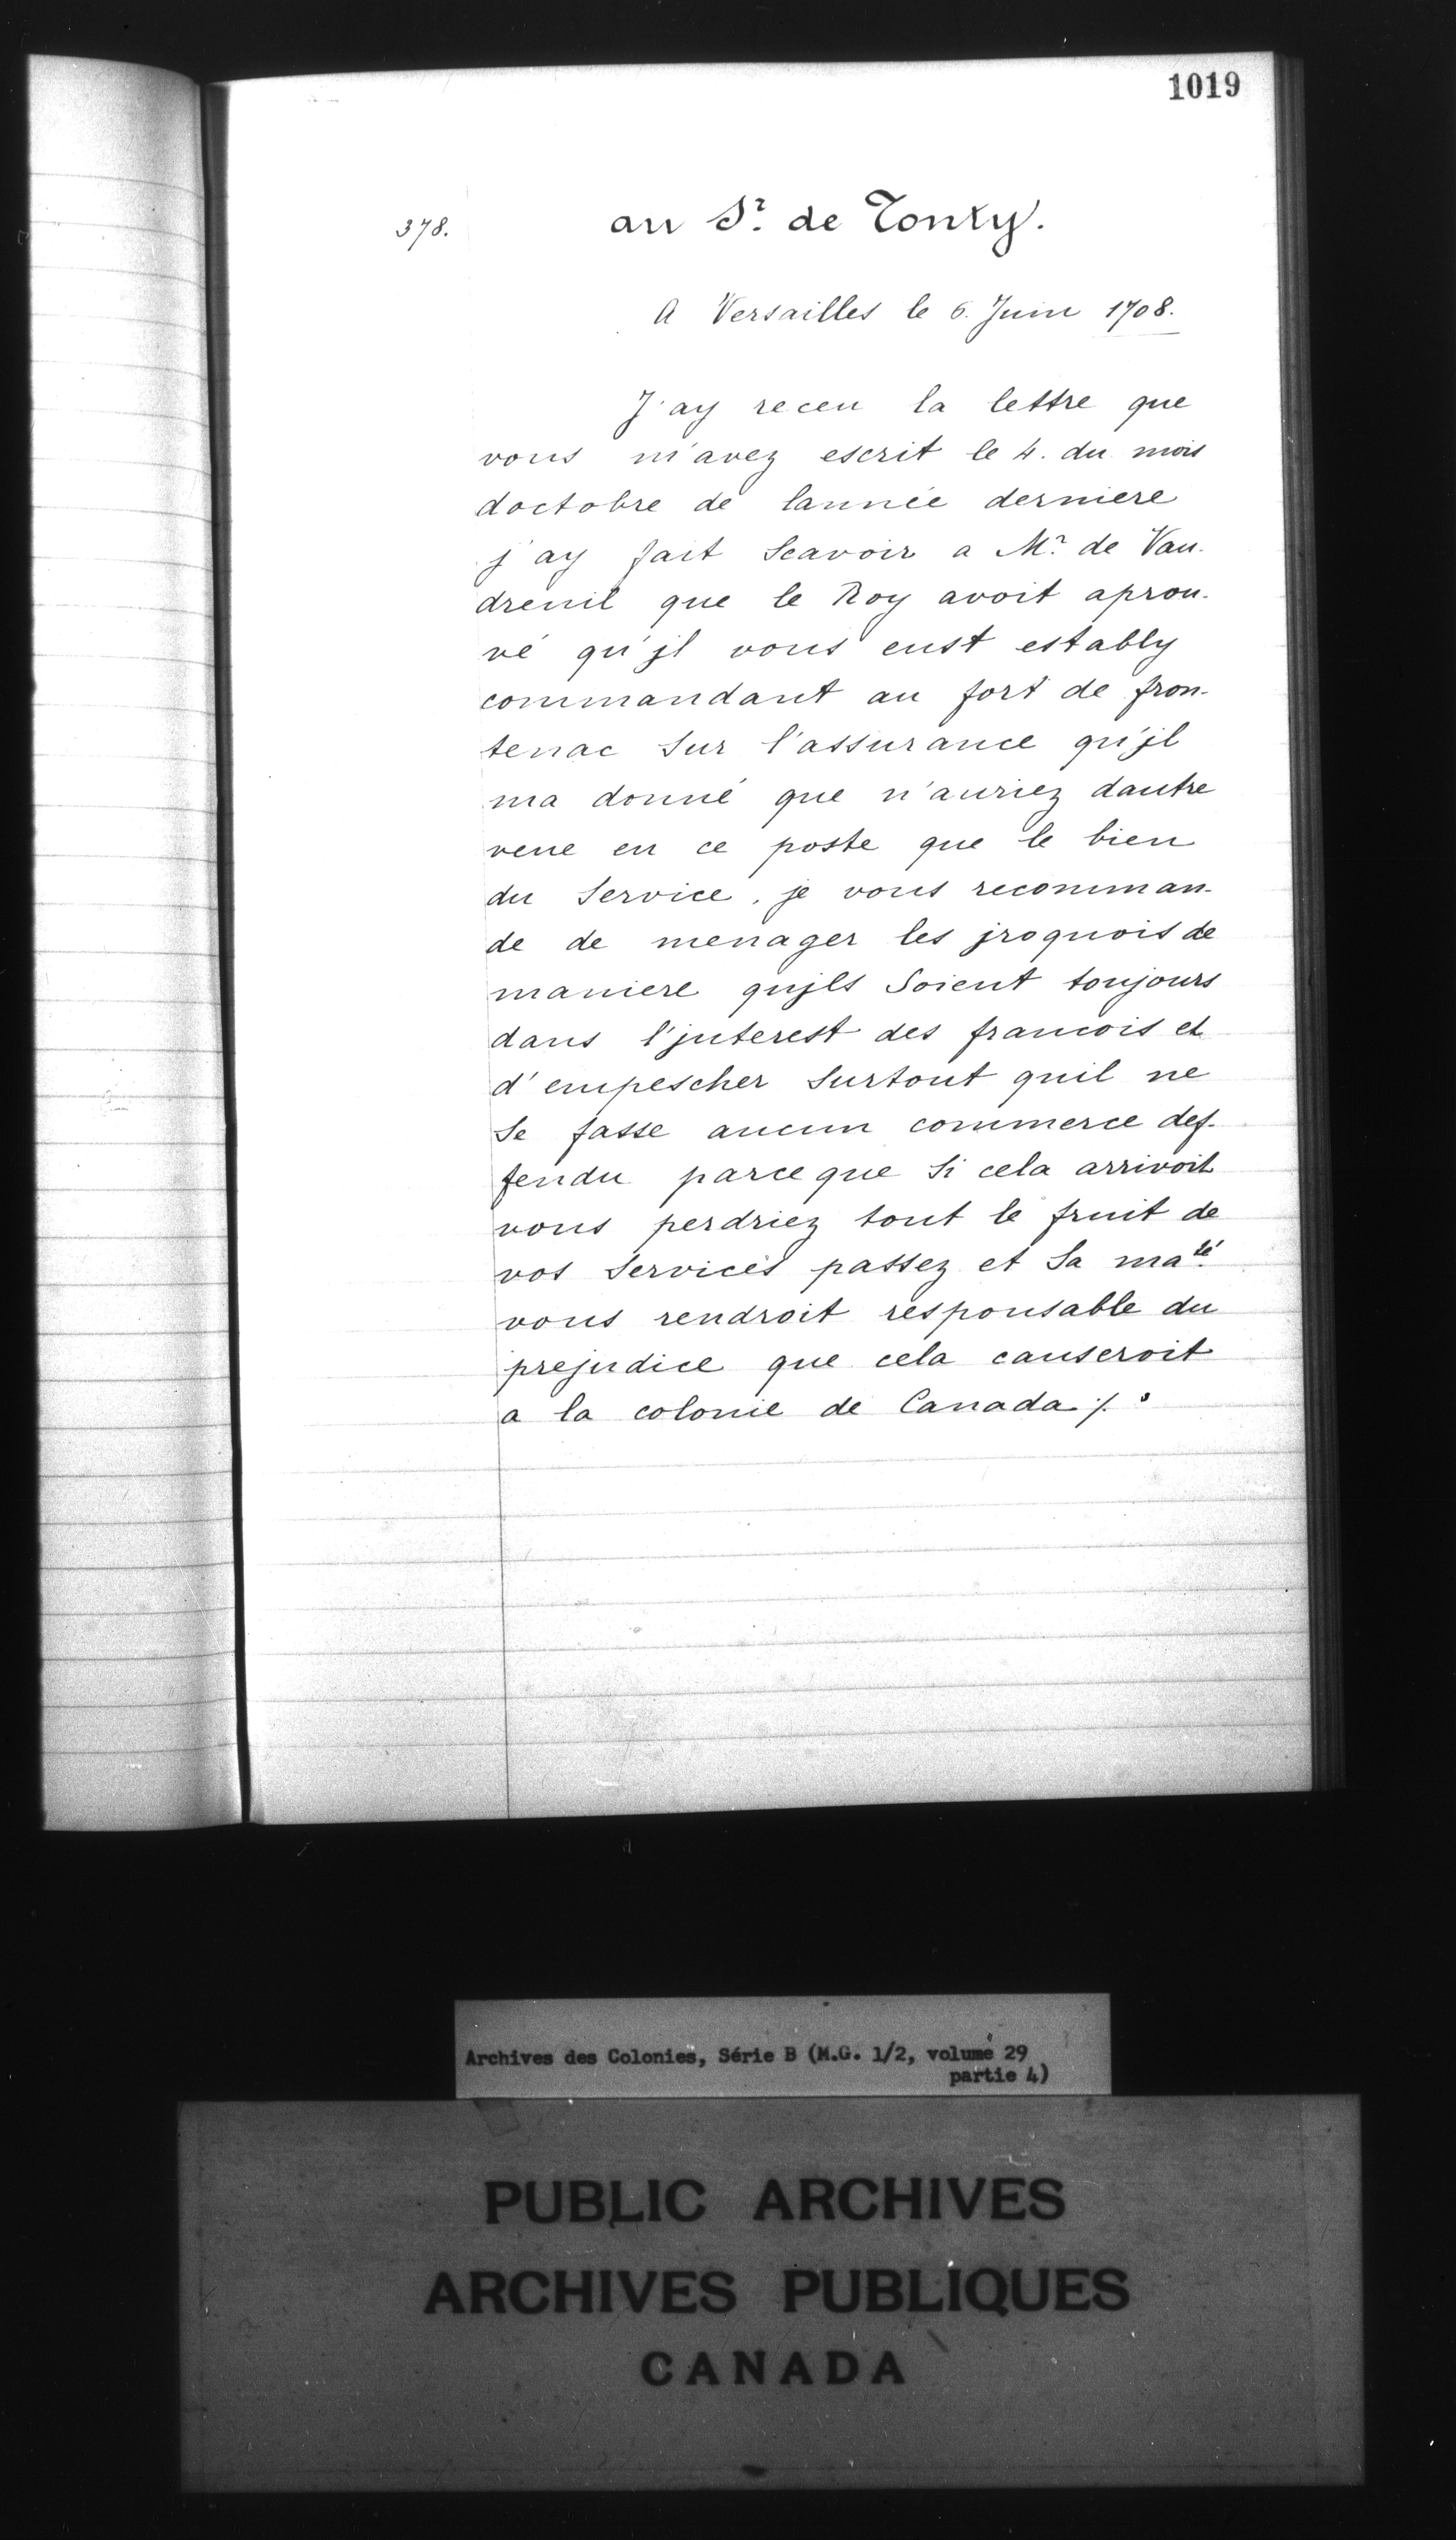 1019
378.
au Sr. de Tonty.
A Versailles le 6. Juin 1708.
J'ay receu la lettre que
vous m'avez escrit le 4. du mois
doctobre de lannée derniere
j'ay fait Scavoir a Mr. de Vau-
dreuil que le Roy avoit aprou-
vé qu'jl vous eust estably
commandant au fort de fron-
tenac Sur l'assurance qu'jl
ma donné que n'auriez dautre
veue en ce poste que le bien
du Service, je vous recomman-
de de menager les jroquois de
maniere qujls Soient toujours
dans l'jnterest des francois et
d'empescher Surtout quil ne
Se fasse aucun commerce def-
fendu parceque Si cela arrivoit
vous perdriez tout le fruit de
vos Services passez et Sa maté.
vous rendroit responsable du
prejudice que cela causeroit
a la colonie de Canada ./.
Archives des Colonies, Série B (M.G. 1/2, volume 29
partie 4)
PUBLIC ARCHIVES
ARCHIVES PUBLIQUES
CANADA